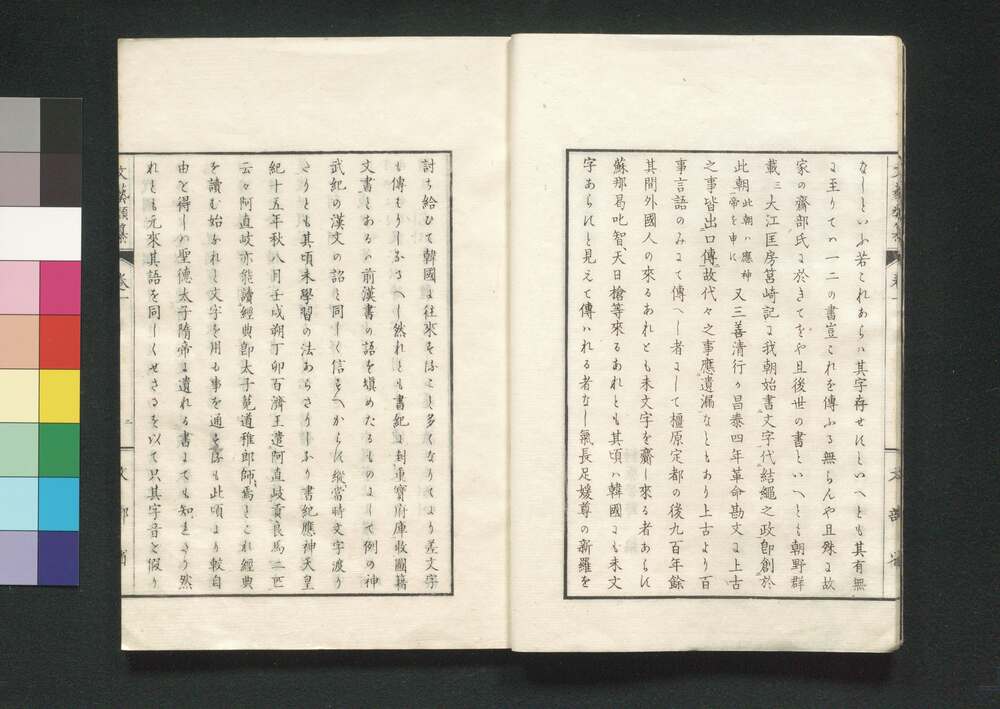 なしといふ若これあらハ其字存せにといへとも其有無
に至りてハ一二の書豈これを傳ふる無らんや且殊に故
家の齋部氏に於きてをや且後世の書といへとも朝野群
載三大江匡房筥崎記に我朝始書文字代結繩之政卽創於
此朝此朝ハ應神帝を申に又三善清行の昌泰四年革命勘文に上古
之事皆出口傳故代々之事應遺漏なともあり上古より百
事言語のみにて傳へし者にして橿原定都の後九百年餘
其間外國人の來るあれとも未文字を齎し來る者あらに
蘇那曷叱智、天日槍等來るあれとも其頃ハ韓國にも未文
字あらにと見えて傳ハれる者なし氣長足媛尊の新羅を
討ち給ひて韓國に往來をほこと多くなりてより差文字
も傳もりしなるへし然れとも書紀に封重寶府庫收圖籍
文書とあるハ前漢書の語を塡めたるものにして例の神
武紀の漢文の詔と同しく信きへからに縱當時文字渡り
さりとも其頃未學習の法あらさりしなり書紀應神天皇
紀十五年秋八月壬戌朔丁卯百濟王遣阿直岐貢良馬二匹
云々阿直岐亦能讀經典卽太子菟道稚郎師焉とこれ經典
を讀む始なれと文字を用る事を通きるも此頃より較自
由を得しハ聖德太子隋帝に遺れる書にても知るきり然
れとも元來其語を同しくせさるを以て只其字音を假り
文藝類纂
卷一
二
文部省